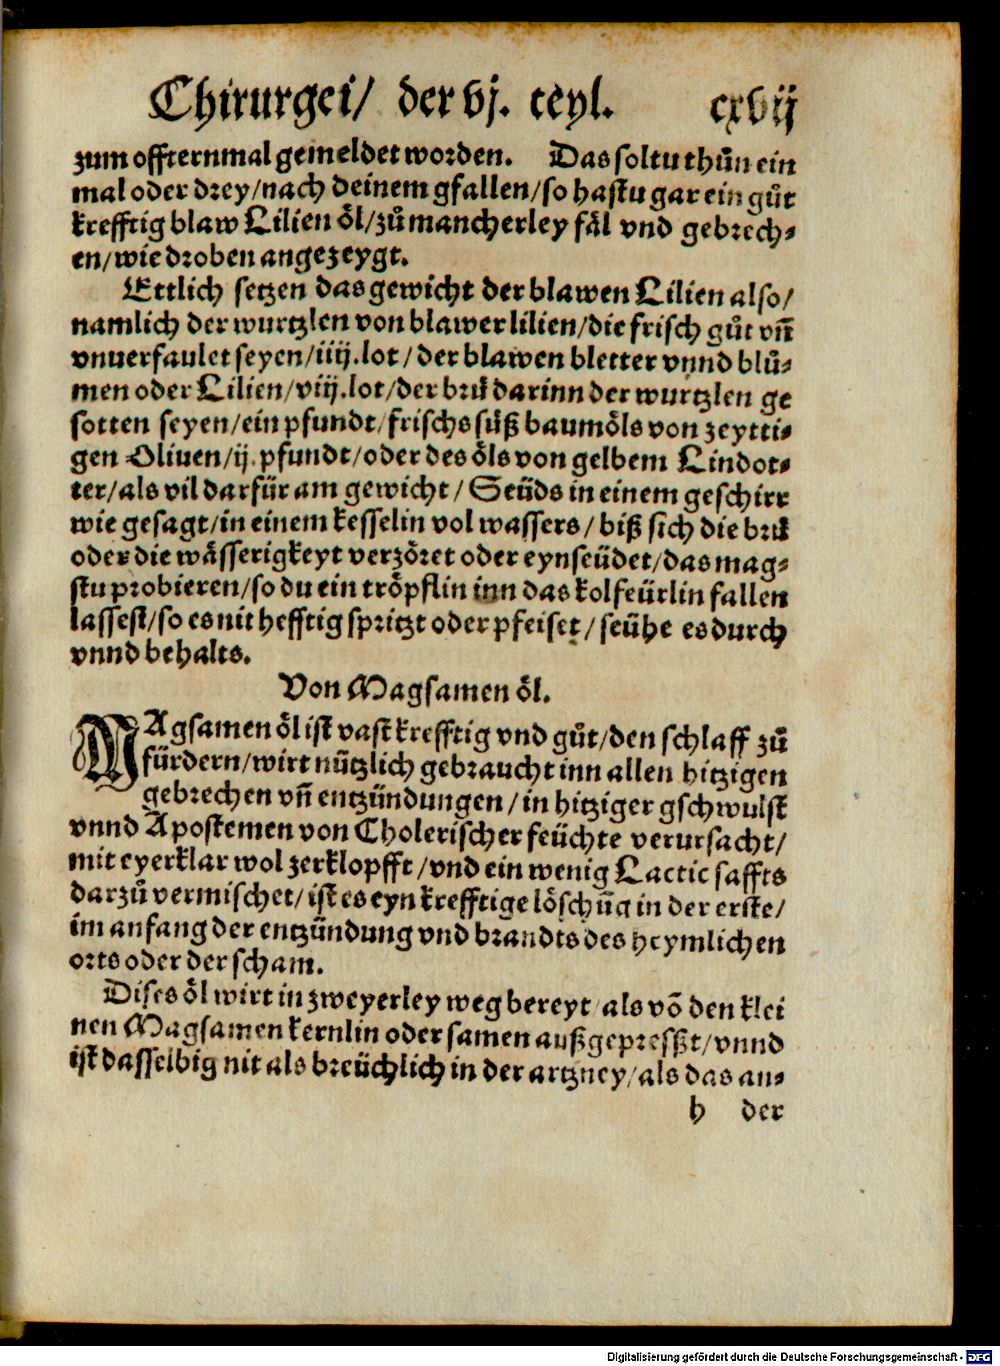 Chirurgei/ der vj. teyl. cxvij
zum offternmal gemeldet worden. Das soltu thůn ein
mal oder drey/nach deinem gfallen/so hastu gar ein gůt
krefftig blaw Lilien öl/zů mancherley fäl vnd gebrech⸗
en/wie droben angezeygt.
Ettlich setzen das gewicht der blawen Lilien also/
namlich der wurtzlen von blawer lilien/die frisch gůt vñ
vnuerfaulet seyen/iiij.lot/der blawen bletter vnnd blů⸗
men oder Lilien/viij.lot/der brü darinn der wurtzlen ge
sotten seyen/ein pfundt/frischs süß baumöls von zeytti⸗
gen Oliuen/ij.pfundt/oder des öls von gelbem Lindot⸗
ter/als vil darfür am gewicht/Seüds in einem geschirr
wie gesagt/in einem kesselin vol wassers/biß sich die brü
oder die wässerigkeyt verzöret oder eynseüdet/das mag⸗
stu probieren/so du ein tröpflin inn das kolfeürlin fallen
lassest/so es nit hefftig spritzt oder pfeiset/seühe es durch
vnnd behalts.
Von Magsamen öl.
MAgsamen öl ist vast krefftig vnd gůt/den schlaff zů
fürdern/wirt nützlich gebraucht inn allen hitzigen
gebrechen vñ entzündungen/in hitziger gschwulst
vnnd Apostemen von Cholerischer feüchte verursacht/
mit eyerklar wol zerklopfft/vnd ein wenig Lactic saffts
darzů vermischet/ist es eyn krefftige löschũg in der erste/
im anfang der entzündung vnd brandts des heymlichen
orts oder der scham.
Dises öl wirt in zweyerley weg bereyt/als võ den klei
nen Magsamen kernlin oder samen außgepreßt/vnnd
ist dasselbig nit als breüchlich in der artzney/als das an⸗
h der
Digitalisierung gefördert durch die Deutsche Forschungsgemeinschaft - DFG